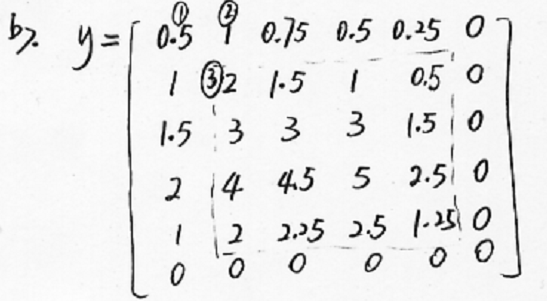 b). y = [ 0.5 ① 1 ② 0.75 0.5 0.25 0
1 ③ 2 1.5 1 0.5 0
1.5 3 3 3 1.5 0
2 4 4.5 5 2.5 0
1 2 2.25 2.5 1.25 0
0 0 0 0 0 0 ]